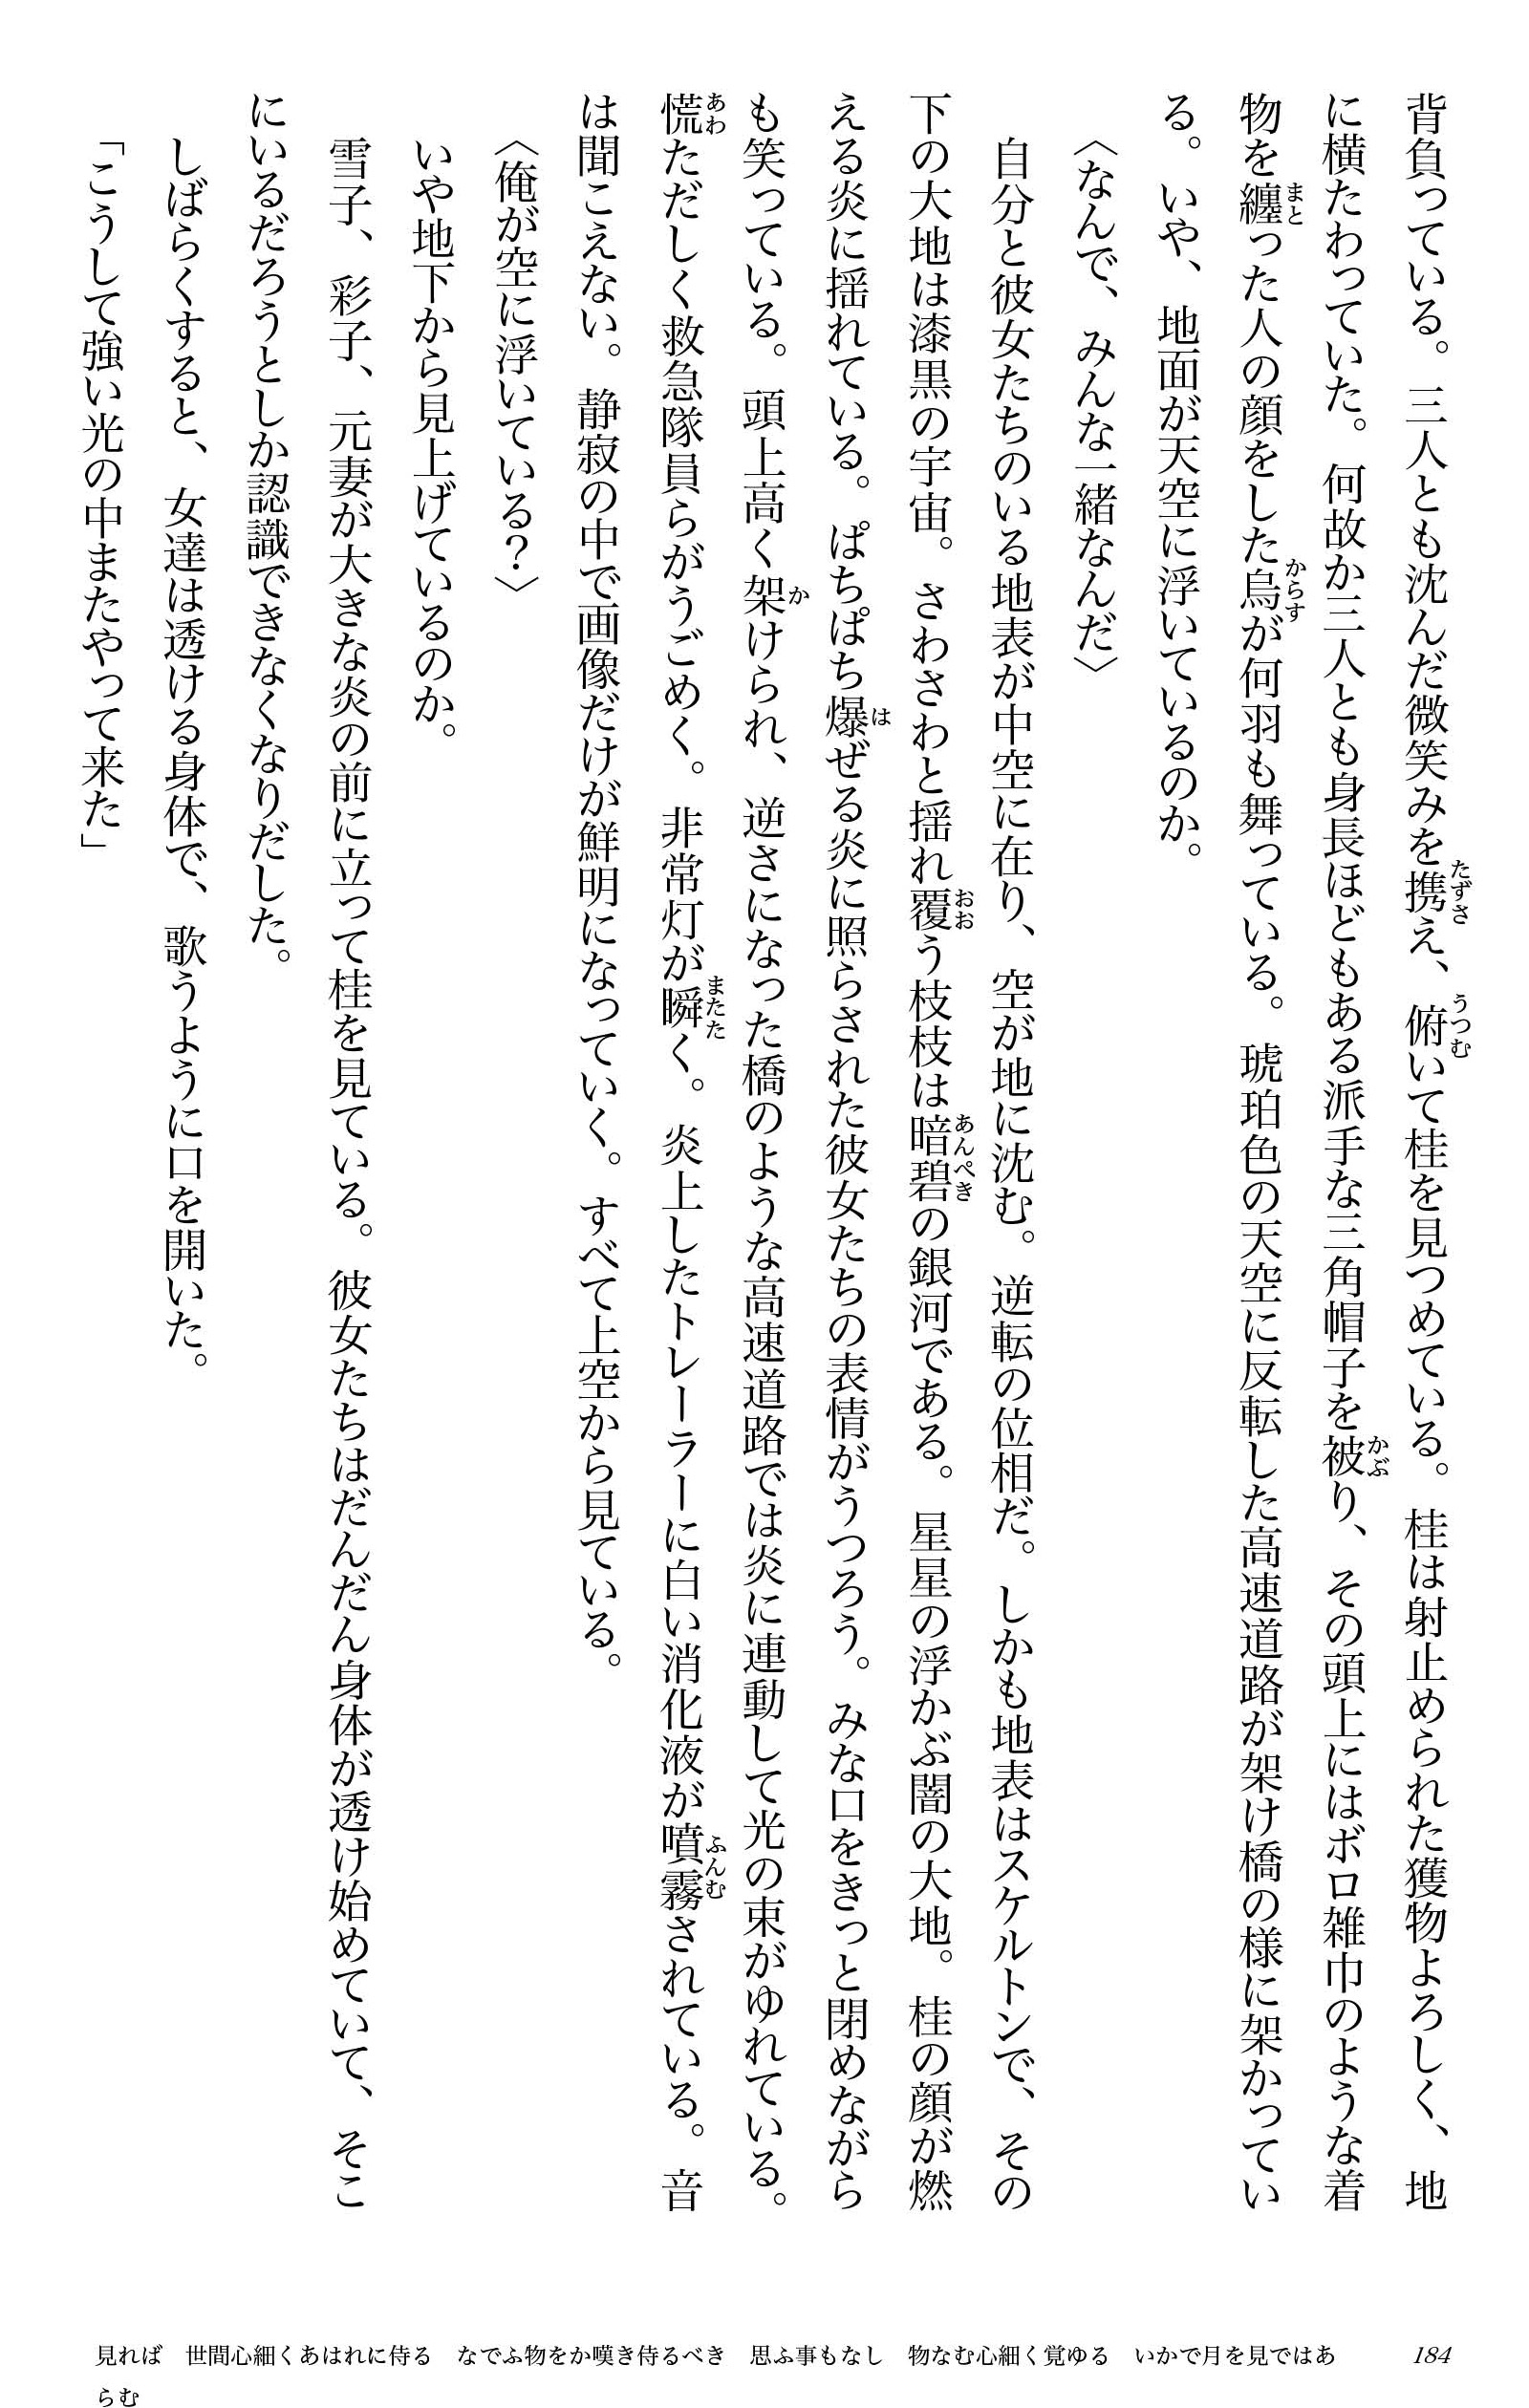 背負っている。三人とも沈んだ微笑みを携え、俯いて桂を見つめている。桂は射止められた獲物よろしく、地
に横たわっていた。何故か三人とも身長ほどもある派手な三角帽子を被り、その頭上にはボロ雑巾のような着
物を纏った人の顔をした烏が何羽も舞っている。琥珀色の天空に反転した高速道路が架け橋の様に架かってい
る。いや、地面が天空に浮いているのか。
〈なんで、みんな一緒なんだ〉
自分と彼女たちのいる地表が中空に在り、空が地に沈む。逆転の位相だ。しかも地表はスケルトンで、その
下の大地は漆黒の宇宙。さわさわと揺れ覆う枝枝は暗碧の銀河である。星星の浮かぶ闇の大地。桂の顔が燃
える炎に揺れている。ぱちぱち爆ぜる炎に照らされた彼女たちの表情がうつろう。みな口をきっと閉めながら
も笑っている。頭上高く架けられ、逆さになった橋のような高速道路では炎に連動して光の束がゆれている。
慌ただしく救急隊員らがうごめく。非常灯が瞬く。炎上したトレーラーに白い消化液が噴霧されている。音
は聞こえない。静寂の中で画像だけが鮮明になっていく。すべて上空から見ている。
〈俺が空に浮いている？〉
いや地下から見上げているのか。
雪子、彩子、元妻が大きな炎の前に立って桂を見ている。彼女たちはだんだん身体が透け始めていて、そこ
にいるだろうとしか認識できなくなりだした。
しばらくすると、女達は透ける身体で、歌うように口を開いた。
「こうして強い光の中またやって来た」
見れば　世間心細くあはれに侍る　なでふ物をか嘆き侍るべき　思ふ事もなし　物なむ心細く覚ゆる　いかで月を見ではあ
らむ
184